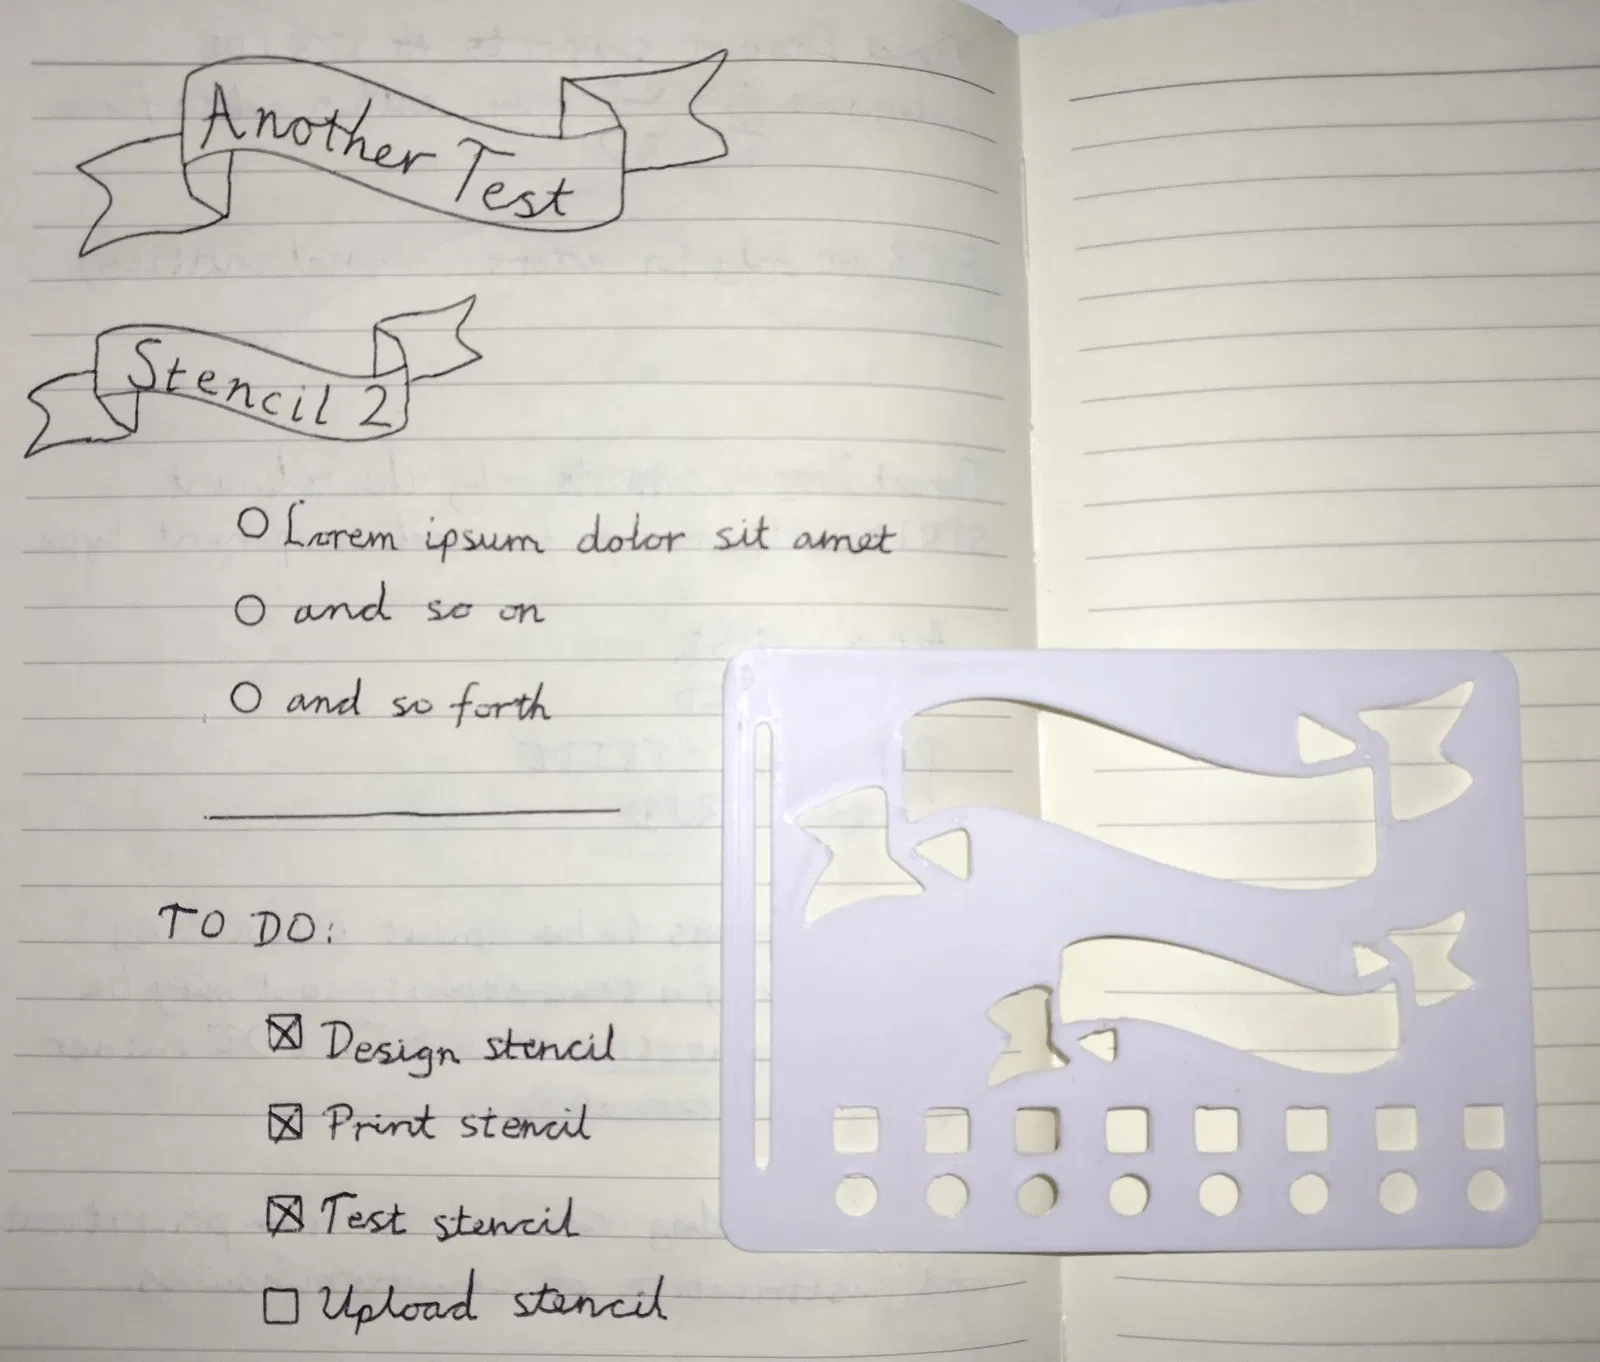 Another Test
Stencil 2
Lorem ipsum dolor sit amet
and so on
and so forth
TO DO:
Design stencil
Print stencil
Test stencil
Upload stencil